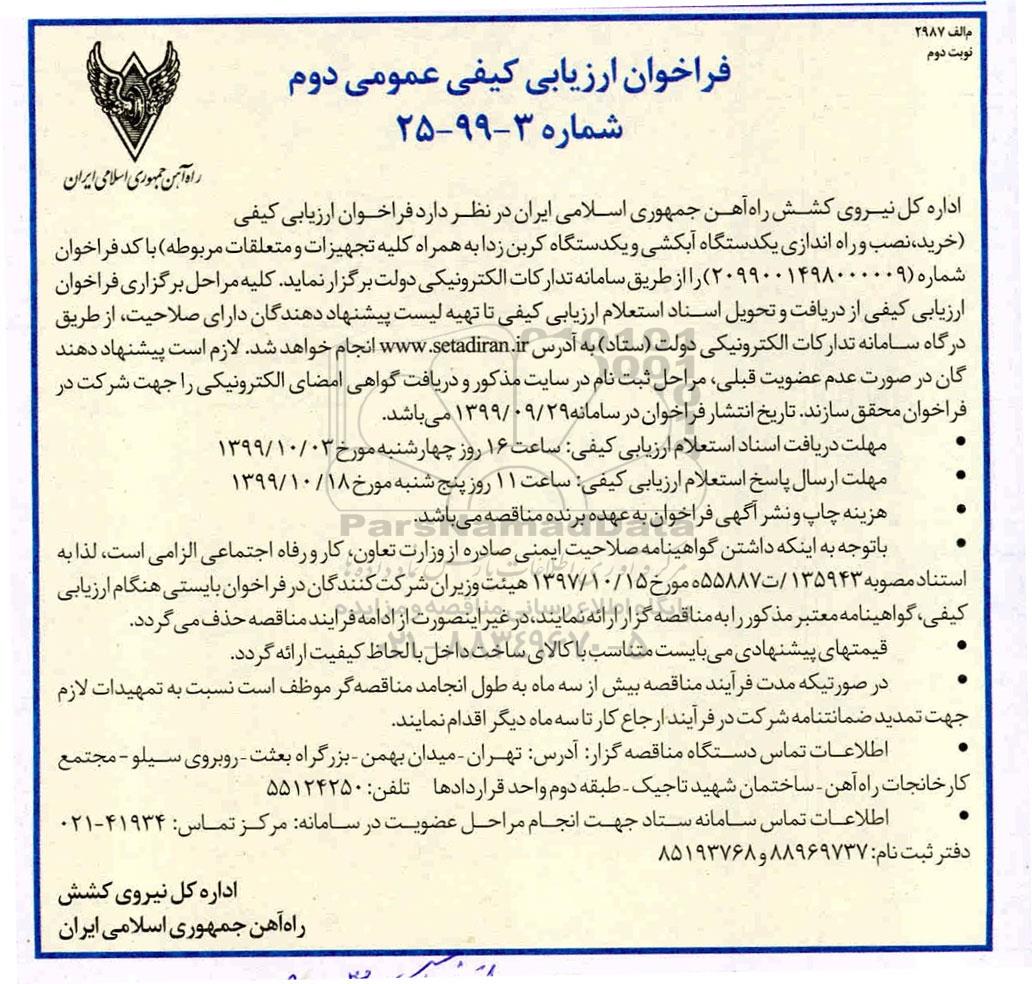 م‌الف ۲۹۸۷
نوبت دوم
فراخوان ارزیابی کیفی عمومی دوم
شماره ۳-۹۹-۲۵
راه‌آهن جمهوری اسلامی ایران
اداره کل نیروی کشش راه‌آهن جمهوری اسلامی ایران در نظر دارد فراخوان ارزیابی کیفی
(خرید،نصب و راه اندازی یکدستگاه آبکشی و یکدستگاه کربن زدا به همراه کلیه تجهیزات و متعلقات مربوطه) با کد فراخوان
شماره (۲۰۹۹۰۰۱۴۹۸۰۰۰۰۰۹) را از طریق سامانه تدارکات الکترونیکی دولت برگزار نماید. کلیه مراحل برگزاری فراخوان
ارزیابی کیفی از دریافت و تحویل اسناد استعلام ارزیابی کیفی تا تهیه لیست پیشنهاد دهندگان دارای صلاحیت، از طریق
درگاه سامانه تدارکات الکترونیکی دولت (ستاد) به آدرس www.setadiran.ir انجام خواهد شد. لازم است پیشنهاد دهند
گان در صورت عدم عضویت قبلی، مراحل ثبت نام در سایت مذکور و دریافت گواهی امضای الکترونیکی را جهت شرکت در
فراخوان محقق سازند. تاریخ انتشار فراخوان در سامانه ۱۳۹۹/۰۹/۲۹ می‌باشد.
• مهلت دریافت اسناد استعلام ارزیابی کیفی: ساعت ۱۶ روز چهارشنبه مورخ ۱۳۹۹/۱۰/۰۳
• مهلت ارسال پاسخ استعلام ارزیابی کیفی: ساعت ۱۱ روز پنج شنبه مورخ ۱۳۹۹/۱۰/۱۸
• هزینه چاپ و نشر آگهی فراخوان به عهده برنده مناقصه می‌باشد.
ParsNamadData
• باتوجه به اینکه داشتن گواهینامه صلاحیت ایمنی صادره از وزارت تعاون، کار و رفاه اجتماعی الزامی است، لذا به
استناد مصوبه ۱۳۵۹۴۳/ت۵۵۸۸۷ه مورخ ۱۳۹۷/۱۰/۱۵ هیئت وزیران شرکت‌کنندگان در فراخوان بایستی هنگام ارزیابی
کیفی، گواهینامه معتبر مذکور را به مناقصه گزار ارائه نمایند، در غیر اینصورت از ادامه فرایند مناقصه حذف می گردد.
پایگاه اطلاع رسانی مناقصه و مزایده
۰۲۱-۸۸۳۴۹۶۷۰-۵
• قیمتهای پیشنهادی می‌بایست متناسب با کالای ساخت داخل با لحاظ کیفیت ارائه گردد.
• در صورتیکه مدت فرآیند مناقصه بیش از سه ماه به طول انجامد مناقصه‌گر موظف است نسبت به تمهیدات لازم
جهت تمدید ضمانتنامه شرکت در فرآیند ارجاع کار تا سه ماه دیگر اقدام نمایند.
• اطلاعات تماس دستگاه مناقصه گزار: آدرس: تهران-میدان بهمن-بزرگراه بعثت-روبروی سیلو-مجتمع
کارخانجات راه‌آهن-ساختمان شهید تاجیک-طبقه دوم واحد قراردادها تلفن: ۵۵۱۲۴۲۵۰
• اطلاعات تماس سامانه ستاد جهت انجام مراحل عضویت در سامانه: مرکز تماس: ۴۱۹۳۴-۰۲۱
دفتر ثبت نام: ۸۸۹۶۹۷۳۷ و ۸۵۱۹۳۷۶۸
اداره کل نیروی کشش
راه‌آهن جمهوری اسلامی ایران